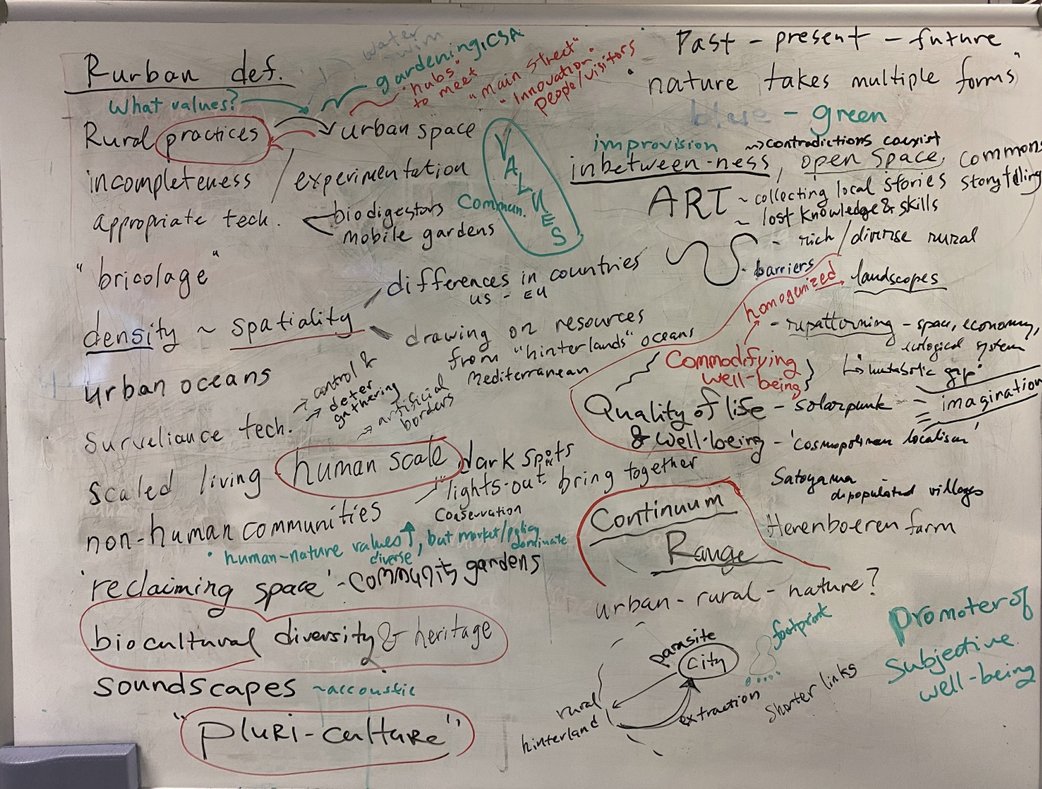 Rurban def.
What values?
water
gardening, CSA
"hubs"
to meet
"main street"
"Innovation"
People/visitors
Rural practices
urban space
incompleteness / experimentation
appropriate tech.
biodigestors
mobile gardens
Commun.
VALUES
"bricolage"
density ~ spatiality
differences in countries
US - EU
drawing on resources
from "hinterlands" oceans
Mediterranean
urban oceans
Surveliance tech.
control &
deter
gathering
artificial
borders
Scaled living human scale
dark spots
"lights-out" bring together
Conservation
non-human communities
human-nature values, but market/policy
diverse
dominate
'reclaiming space' - community gardens
biocultural diversity & heritage
soundscapes ~accoustic
"pluri-culture"
Past - present - future
"nature takes multiple forms"
blue - green
improvision
contradictions coexist
inbetween-ness, open space, commons
ART
~ collecting local stories storytelling
~ lost knowledge & skills
- rich/diverse rural
landscopes
• barriers
homogenized
- repatterning - space, economy,
ecological system
metabolic gap
Commodifying
well-being
Quality of life - solarpunk = imagination
& well-being - 'cosmopolitan localism'
Satoyama
depopulated villages
Herenboeren farm
Continuum
Range
urban - rural - nature?
parasite
City
footprint
rural
hinterland
extraction
shorter links
Promoter of
subjective
well-being